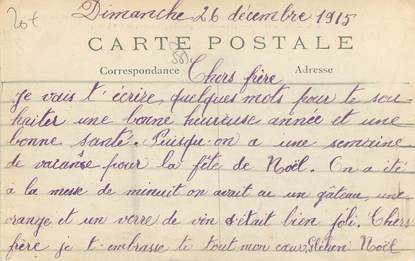 20f
Dimanche 26 décembre 1915
CARTE POSTALE
Correspondance Adresse
Chers frère
Je vais t'écrire quelques mots pour te sou
haiter une bonne heureuse année et une
bonne santé. Puisqu'on a une semaine
de vacanse pour la fête de Noël. On a été
à la messe de minuit on avait eu un gâteau, une
orange et un verre de vin s'était bien joli. Chers
frère je t'embrasse te tout mon cœur. Noël